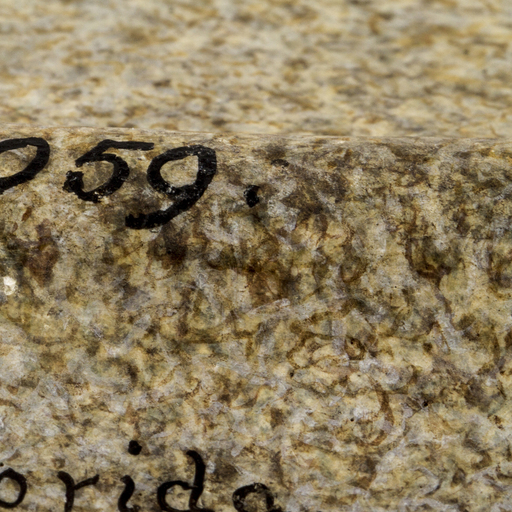 059.
orida